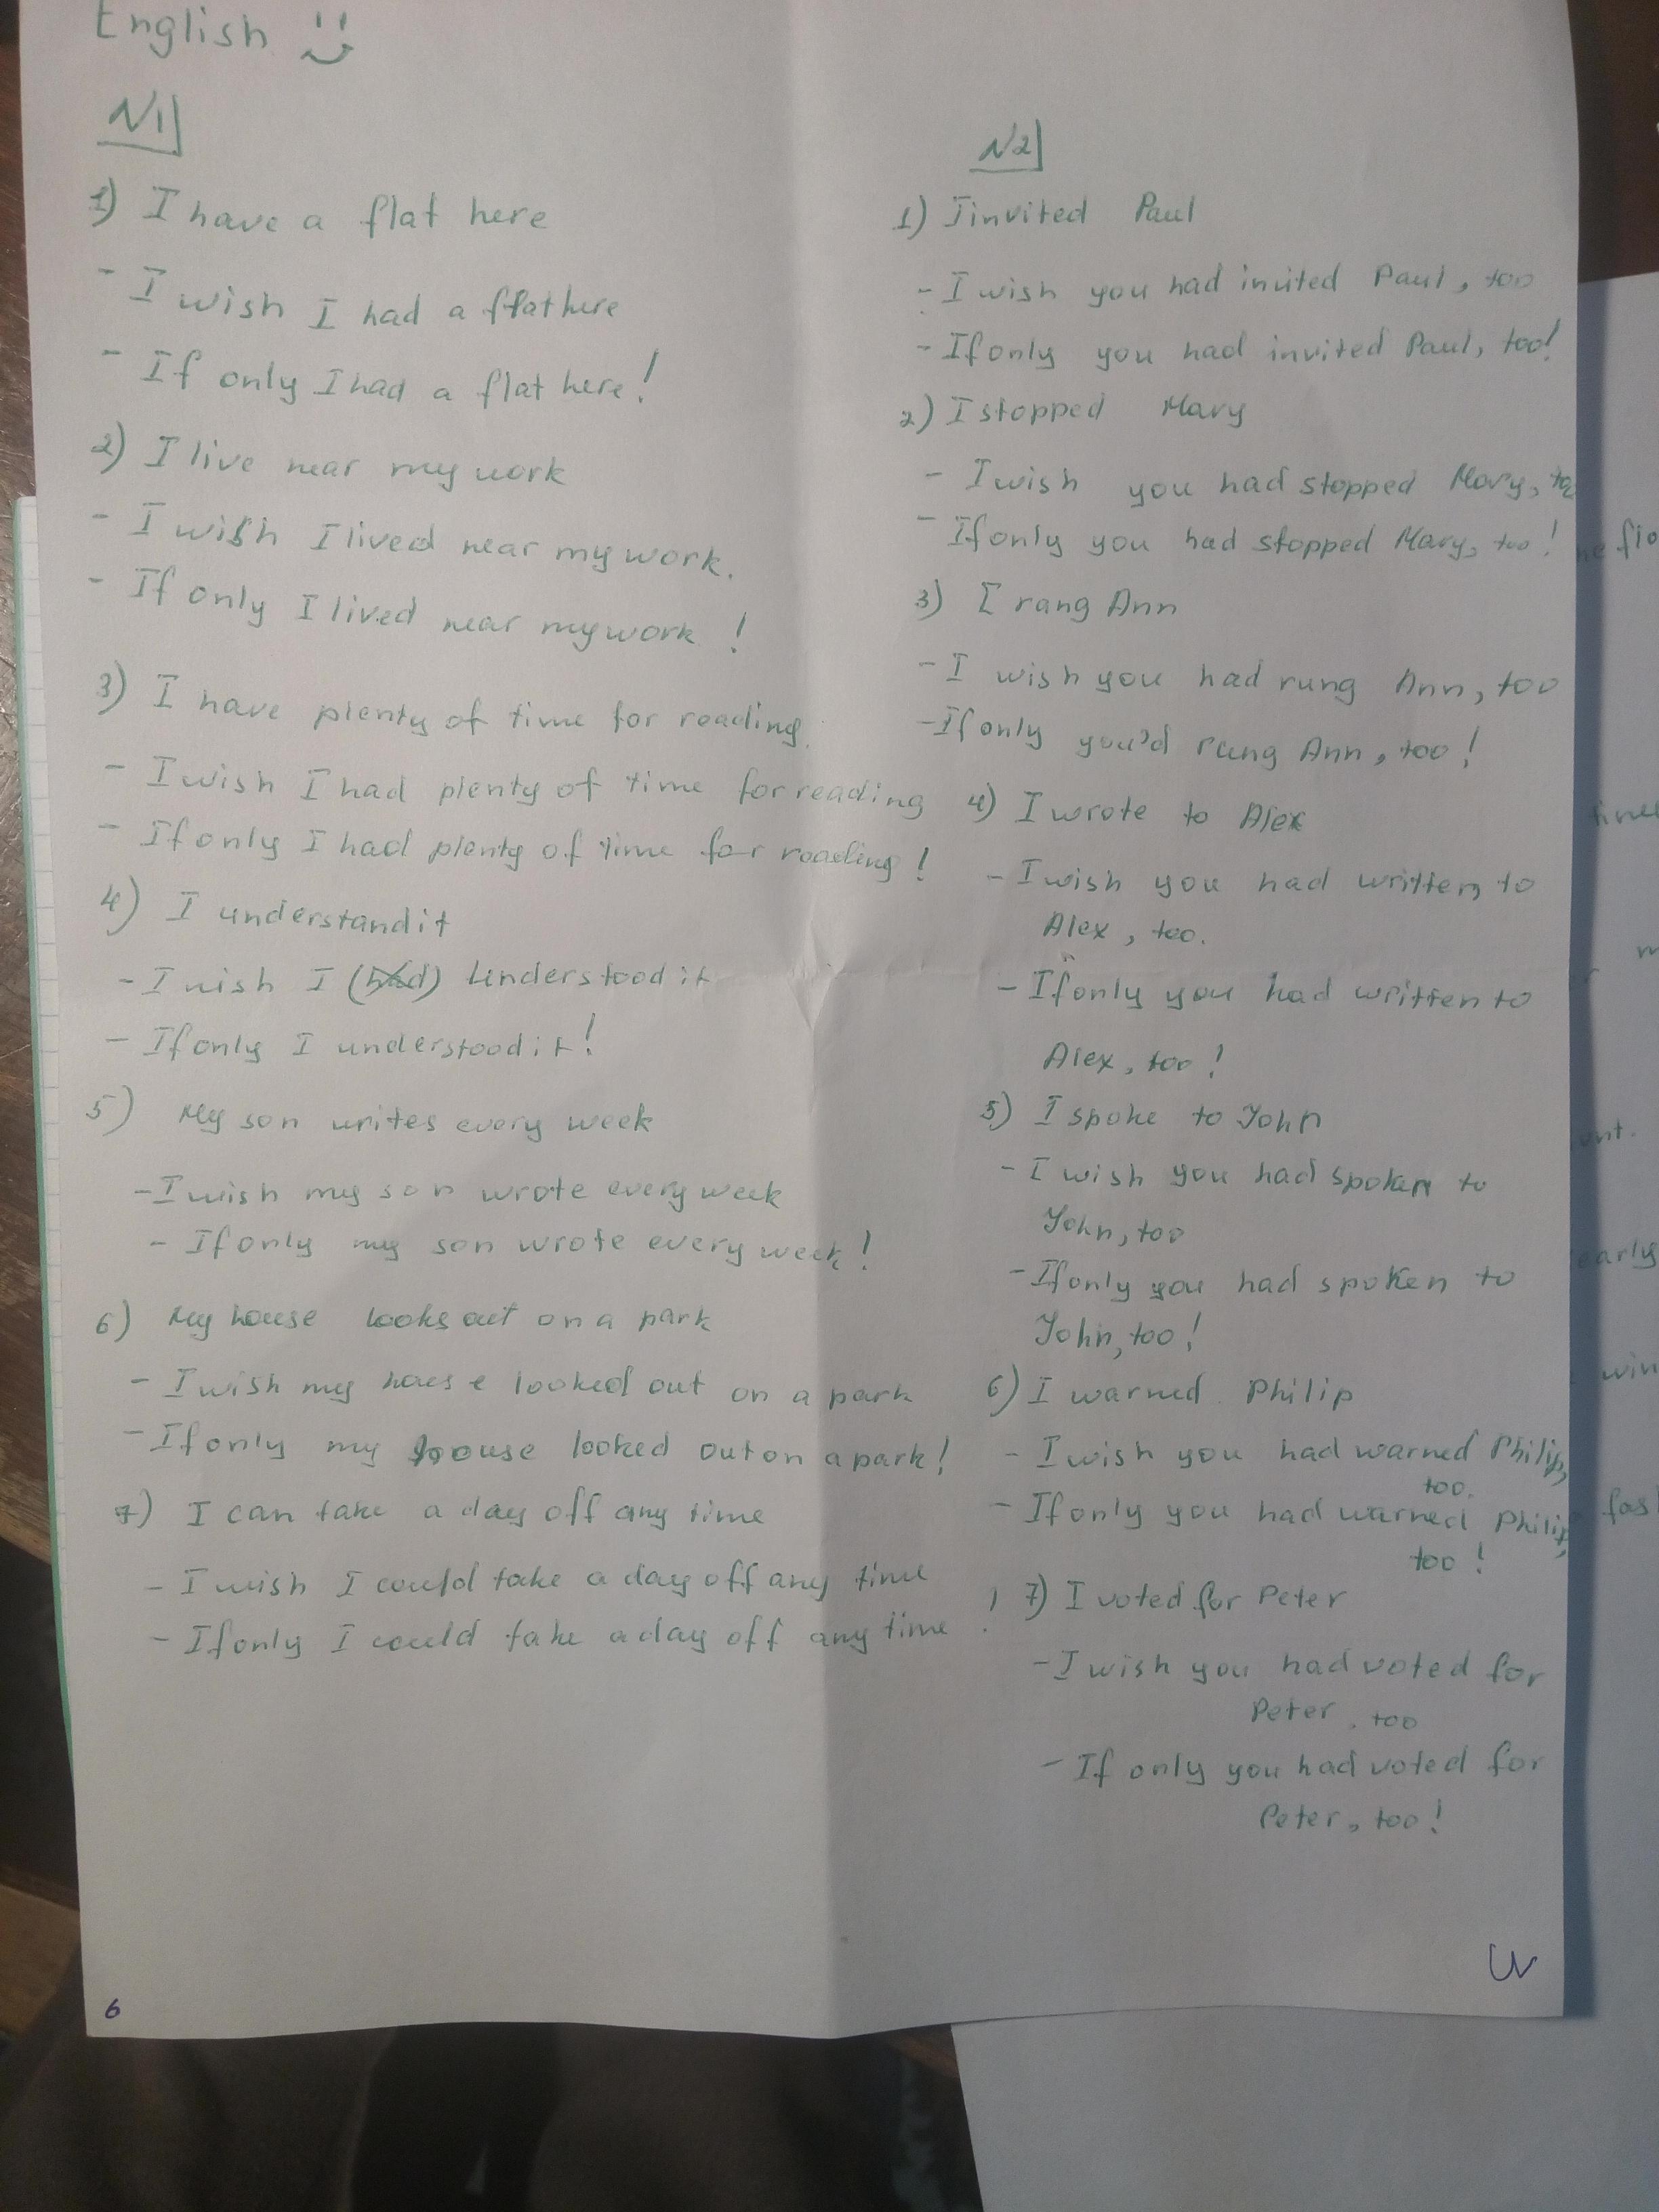 English
N1
1) I have a flat here
- I wish I had a flat here
- If only I had a flat here!
2) I live near my work
- I wish I lived near my work.
- If only I lived near my work !
3) I have plenty of time for reading.
- I wish I had plenty of time for reading
- If only I had plenty of time for reading !
4) I understand it
- I wish I (had) understood it
- If only I understood it!
5) My son writes every week
- I wish my son wrote every week
- If only my son wrote every week!
6) My house looks out on a park
- I wish my house looked out on a park
- If only my house looked out on a park!
7) I can take a day off any time
- I wish I could take a day off any time
- If only I could take a day off any time !
6
N2
1) I invited Paul
- I wish you had invited Paul, too
- If only you had invited Paul, too!
2) I stopped Mary
- I wish you had stopped Mary, too
- If only you had stopped Mary, too !
3) I rang Ann
- I wish you had rung Ann, too
- If only you'd rung Ann, too !
4) I wrote to Alex
- I wish you had written to
Alex, too.
- If only you had written to
Alex, too !
5) I spoke to John
- I wish you had spoken to
John, too
- If only you had spoken to
John, too!
6) I warned Philip
- I wish you had warned Philip,
too.
- If only you had warned Philip,
too !
7) I voted for Peter
- I wish you had voted for
Peter, too
- If only you had voted for
Peter, too!